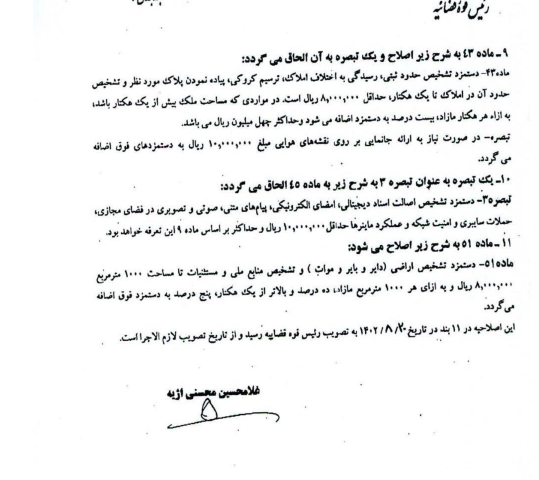 رئیس قوه قضائیه
۹ـ ماده ۴۳ به شرح زیر اصلاح و یک تبصره به آن الحاق می گردد:
ماده۴۳- دستمزد تشخیص حدود ثبتی، رسیدگی به اختلاف املاک، ترسیم کروکی، پیاده نمودن پلاک مورد نظر و تشخیص
حدود آن در املاک تا یک هکتار، حداقل ۸,۰۰۰,۰۰۰ ریال است. در مواردی که مساحت ملک بیش از یک هکتار باشد،
به ازاء هر هکتار مازاد، بیست درصد به دستمزد اضافه می شود وحداکثر چهل میلیون ریال می باشد.
تبصره- در صورت نیاز به ارائه جانمایی بر روی نقشه‌های هوایی مبلغ ۱۰,۰۰۰,۰۰۰ ریال به دستمزدهای فوق اضافه
می گردد.
۱۰ـ یک تبصره به عنوان تبصره ۳ به شرح زیر به ماده ۴۵ الحاق می گردد:
تبصره۳- دستمزد تشخیص اصالت اسناد دیجیتالی، امضای الکترونیکی، پیام‌های متنی، صوتی و تصویری در فضای مجازی،
حملات سایبری و امنیت شبکه و عملکرد ماینرها حداقل ۱۰,۰۰۰,۰۰۰ ریال و حداکثر بر اساس ماده ۹ این تعرفه خواهد بود.
۱۱ ـ ماده ۵۱ به شرح زیر اصلاح می شود:
ماده۵۱- دستمزد تشخیص اراضی (دایر و بایر و موات ) و تشخیص منابع ملی و مستثنیات تا مساحت ۱۰۰۰ مترمربع
۸,۰۰۰,۰۰۰ ریال و به ازای هر ۱۰۰۰ مترمربع مازاد، ده درصد و بالاتر از یک هکتار، پنج درصد به دستمزد فوق اضافه
می‌گردد.
این اصلاحیه در ۱۱ بند در تاریخ ۱۴۰۲/۸/۲۰ به تصویب رئیس قوه قضاییه رسید و از تاریخ تصویب لازم الاجرا است.
غلامحسین محسنی اژیه